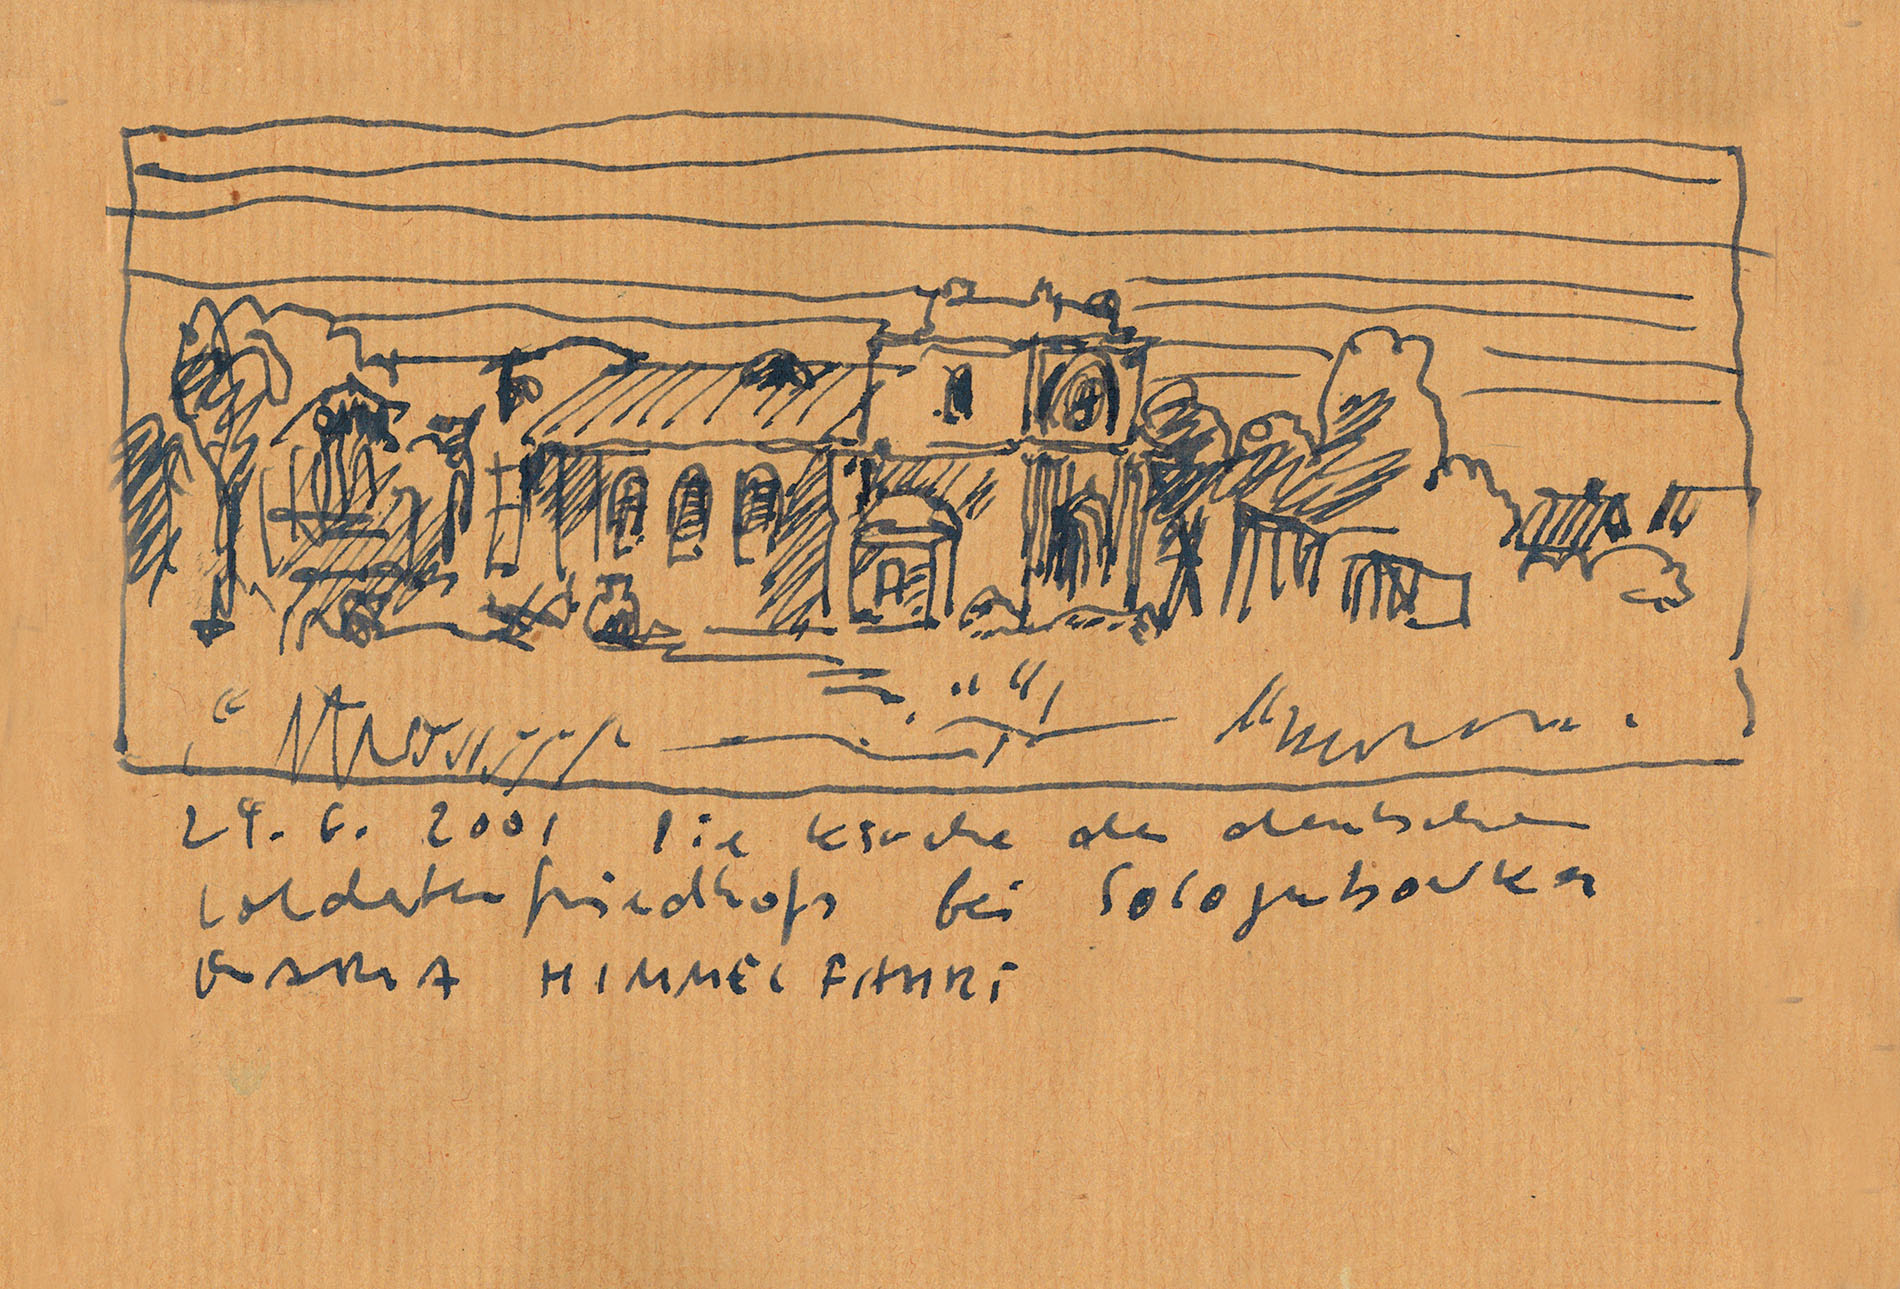 24. 6. 2001 Die Kirche des deutschen
Soldatenfriedhofs bei Sologubowka
MARIA HIMMELFAHRT